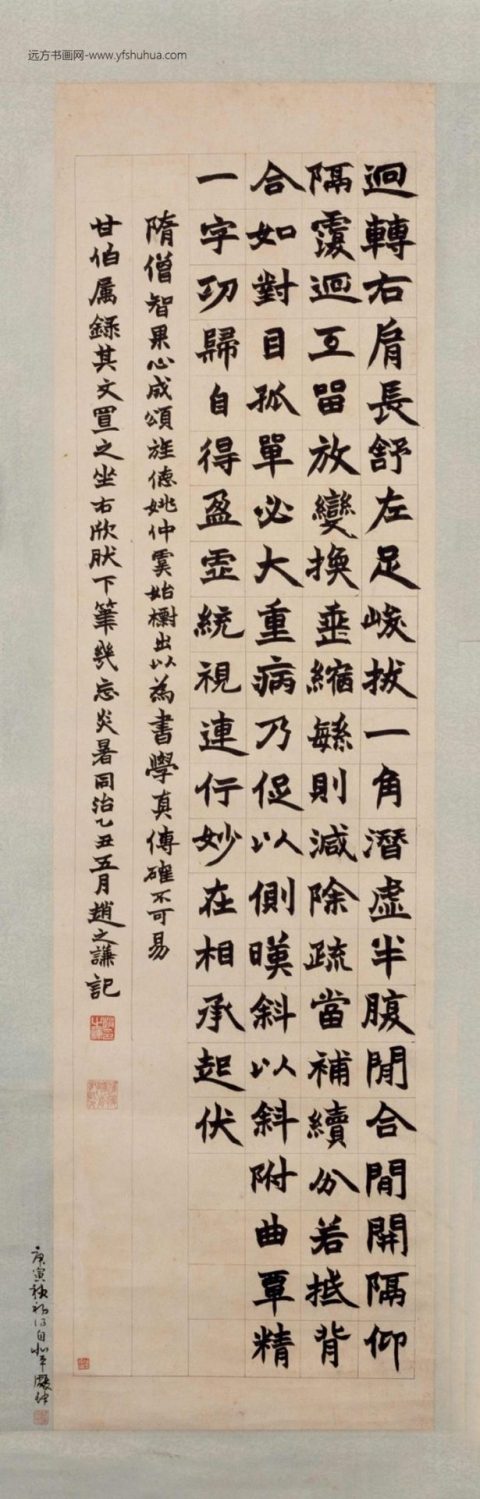 远方书画网-www.yfshuhua.com
迴轉右肩長舒左足峻拔一角潛虛半腹閒合閒開隔仰
隔覆迴互畱放變換垂縮緐則減除疏當補續分若抵背
合如對目孤單必大重病乃促以側暎斜以斜附曲覃精
一字功歸自得盈虛統視連行妙在相承起伏
隋僧智果心成頌旌德姚仲虞始櫥出以為書學真傳確不可易
甘伯属錄其文置之坐右欣肰下筆幾忘炎暑同治乙丑五月趙之謙記
庚寅秋初得自北平